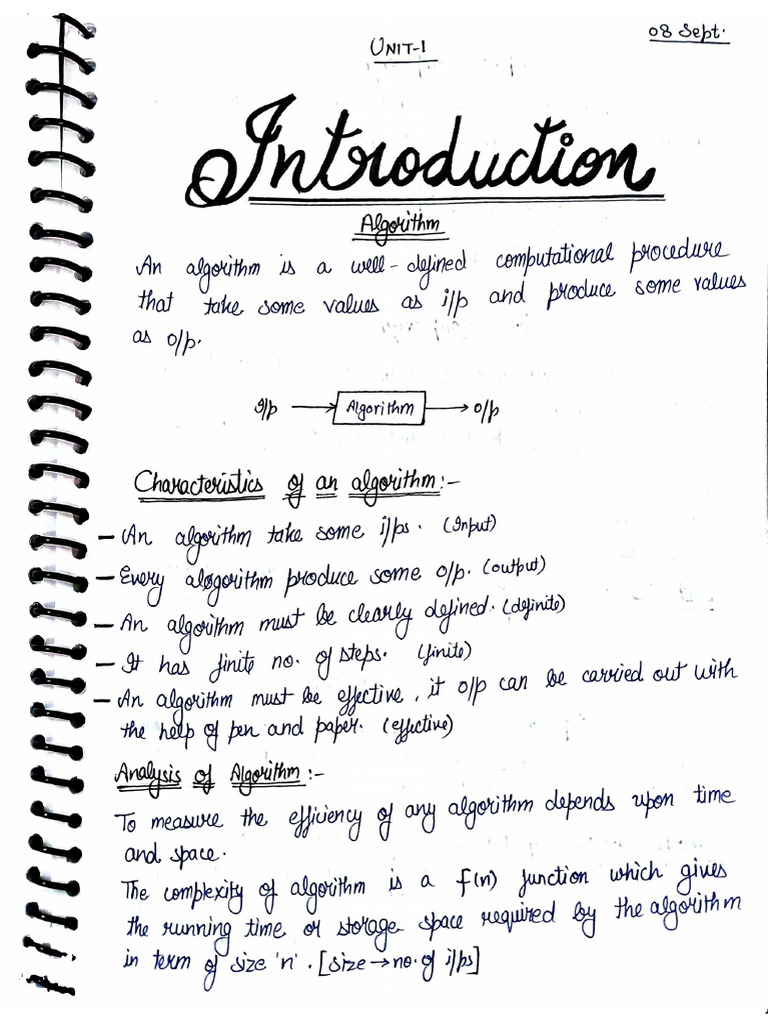 UNIT-1
08 Sept.
Introduction
Algorithm
An algorithm is a well-defined computational procedure
that take some values as i/p and produce some values
as o/p.
I/p → Algorithm → o/p
Characteristics of an algorithm:-
- An algorithm take some i/ps. (Input)
- Every alogorithm produce some o/p. (output)
- An algorithm must be clearly defined. (definite)
- It has finite no. of steps. (finite)
- An algorithm must be effective, it o/p can be carried out with
the help of pen and paper. (effective)
Analysis of Algorithm:-
To measure the efficiency of any algorithm depends upon time
and space.
The complexity of algorithm is a f(n) function which gives
the running time or storage space required by the algorithm
in term of size 'n'. [size → no. of i/ps]